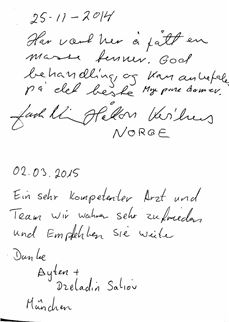 25-11-2014
Har vært her å fått en
masse tenner. God
behandling, og kan anbefales
på det beste Mye pene damer.
Håkon
NORGE
02.03.2015
Ein sehr Kompetenter Arzt und
Team wir wahren sehr zufrieden
und Empfehlen sie weiter
Danke
Ayten +
Dzeladin Saliov
München